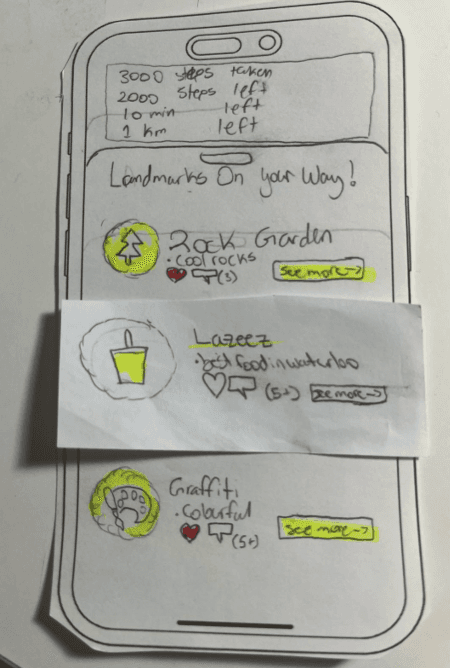 3000 steps taken
2000 steps left
10 min left
1 km left
Landmarks On your Way!
Rock Garden
• cool rocks
(3)
see more →
Lazeez
• best food in waterloo
(5+)
see more →
Graffiti
• colourful
(5+)
see more →